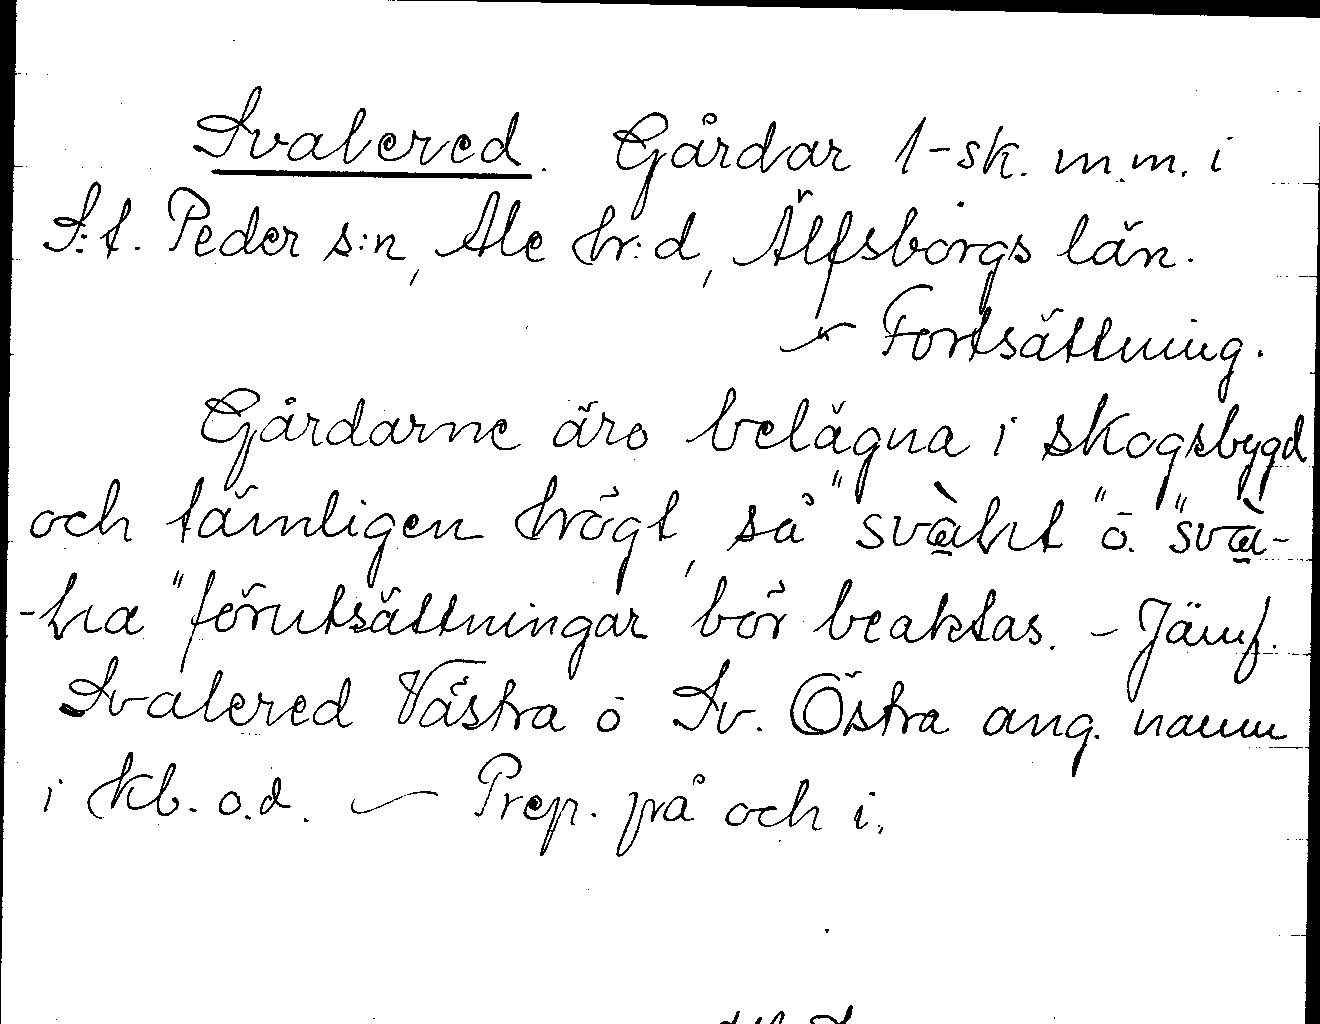 Svalered. Gårdar 1-sk. m.m. i
S:t. Peder s:n, Ale hr:d, Älfsborgs län.
— Fortsättning.
Gårdarne äro belägna i skogsbygd
och tämligen högt, så "svàht" o. "svà-
-ha" förutsättningar bör beaktas. – Jämf.
Svalered Västra o Sv. Östra ang. namn
i kb. o.d. — Prep. på och i.